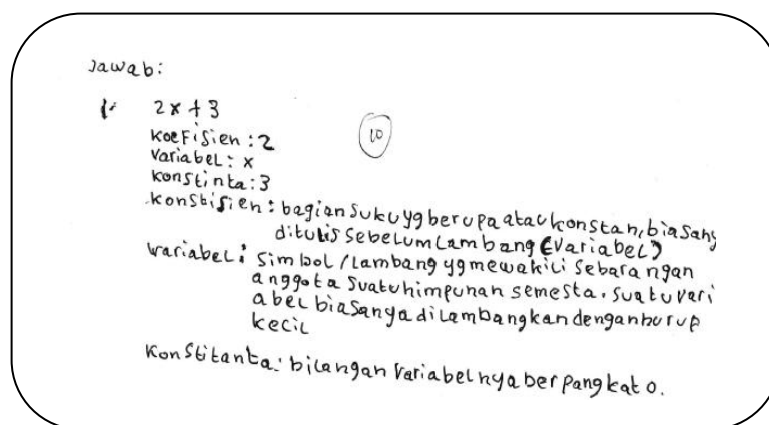 Jawab:
1. 2x + 3
10
Koefisien : 2
Variabel : x
konstinta : 3
konstisien : bagian suku yg berupa atau konstan, biasany
ditulis sebelum lambang (variabel)
Variabel : Simbol / lambang yg mewakili sebarangan
anggota suatu himpunan semesta. suatu vari
abel biasanya di lambangkan dengan hurup
kecil
Konstitanta : bilangan variabelnya berpangkat 0.